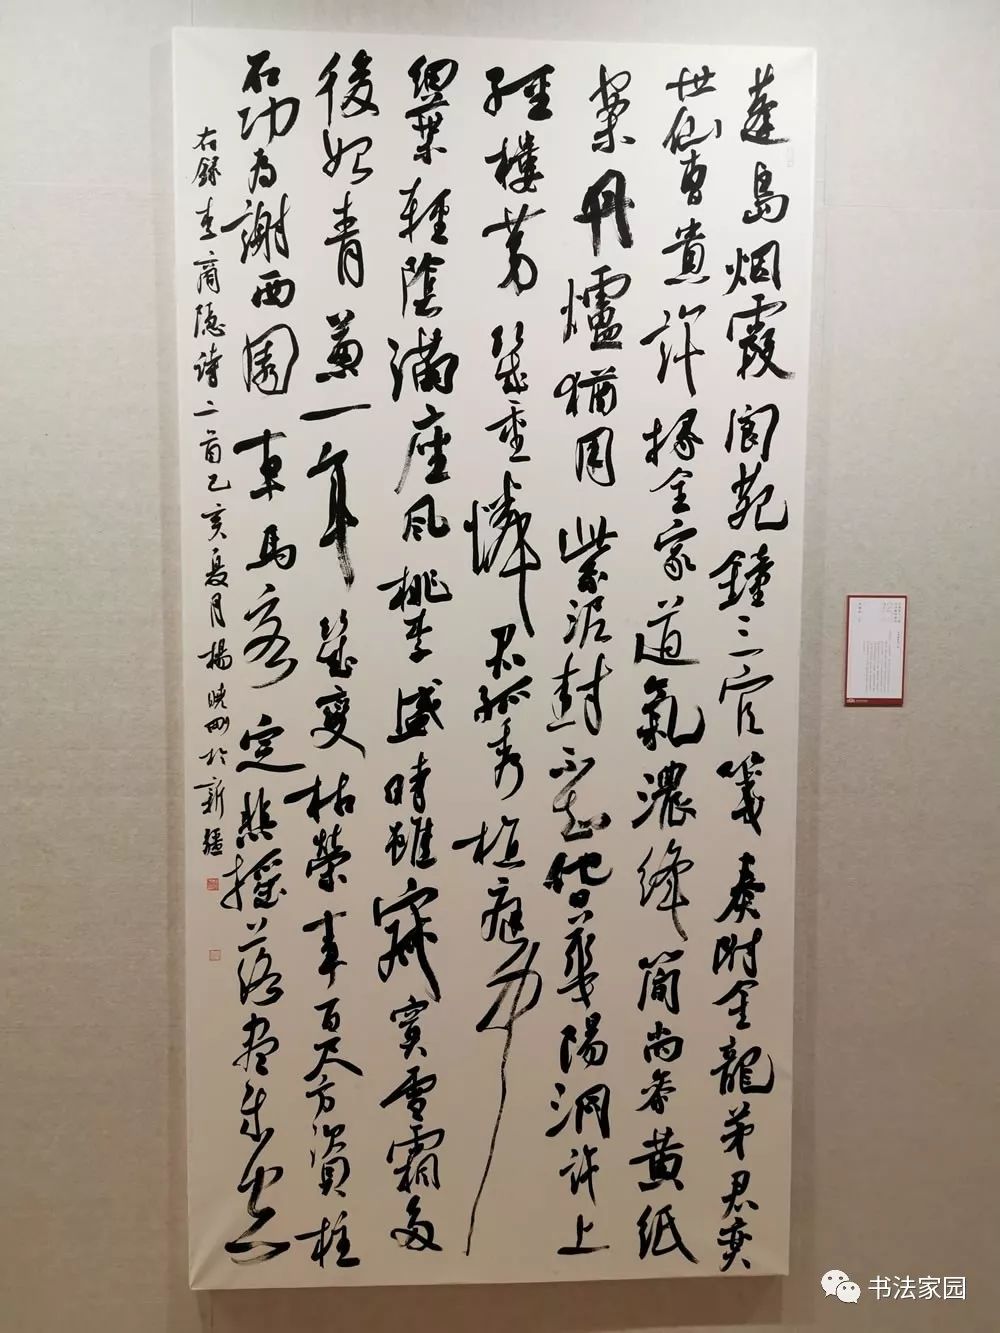 蓬島烟霞閬苑鐘三官箋奏附金龍茅君奕
世仙曹貴許掾全家道氣濃絳簡尚參黃紙
案丹爐猶用紫泥封不知他日華陽洞許上
經樓第幾重憐君孤秀植庭中
細葉輕陰滿座風桃李盛時雖寂寞雪霜多
後始青蔥一年幾變枯榮事百尺方資柱
石功為謝西園車馬客定悲搖落盡成空
右錄李商隱詩二首己亥夏月楊曉剛於新疆
书法家园